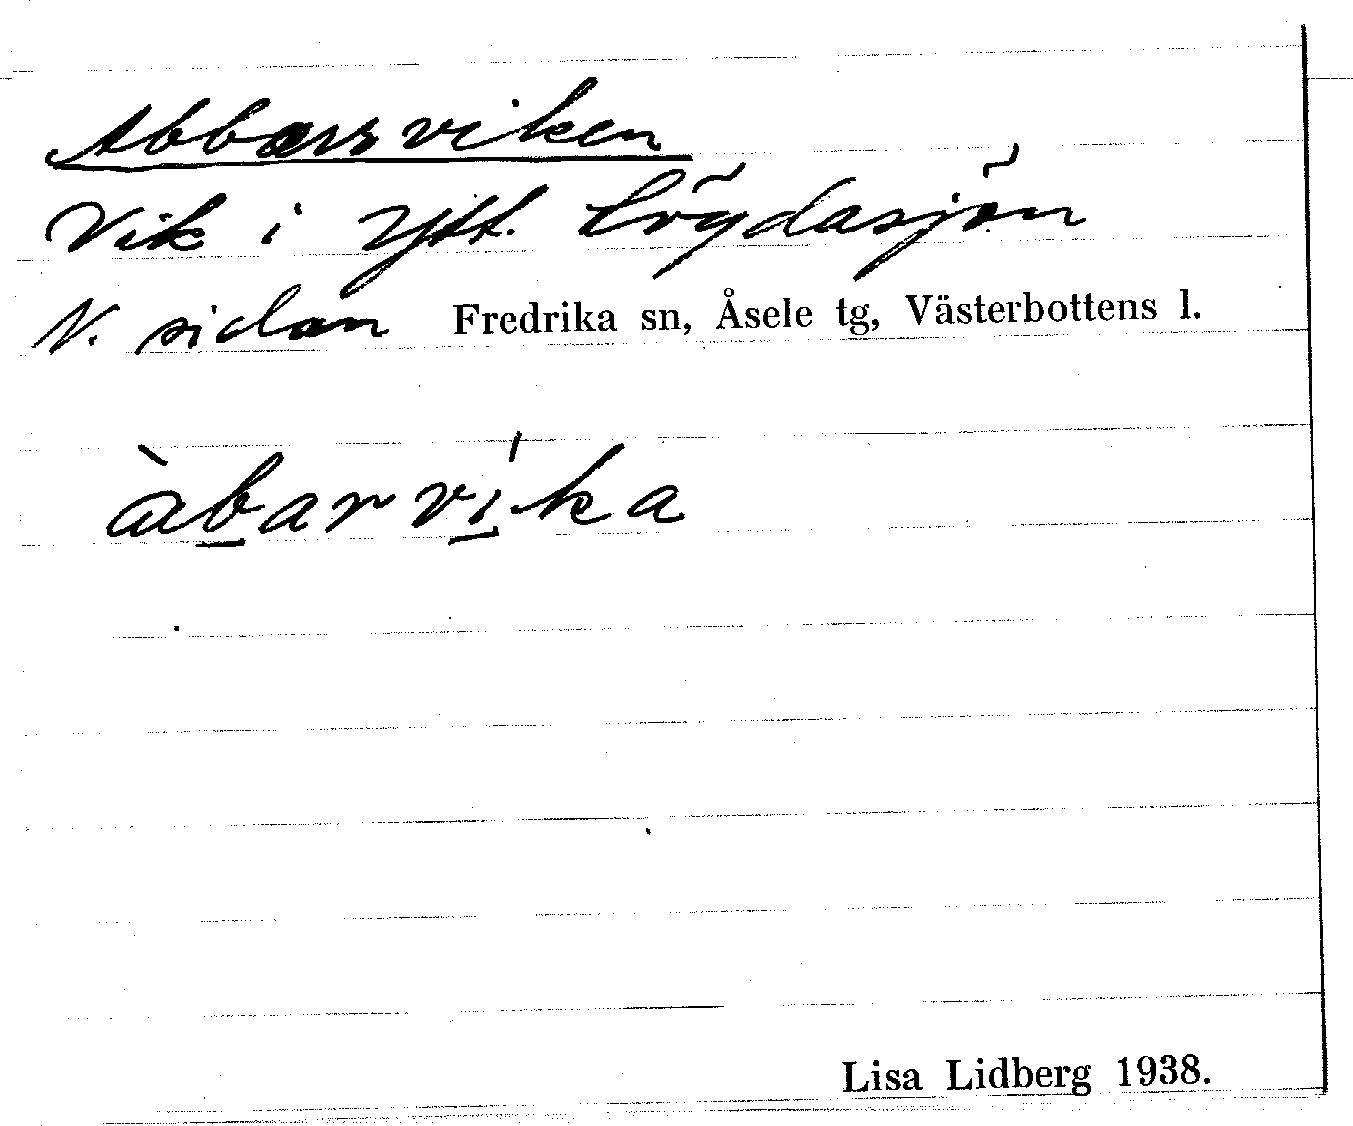 Abbarsviken
Vik i Ytt. Lögdasjön
N. sidan Fredrika sn, Åsele tg, Västerbottens l.
àb̲arví̲ka
Lisa Lidberg 1938.